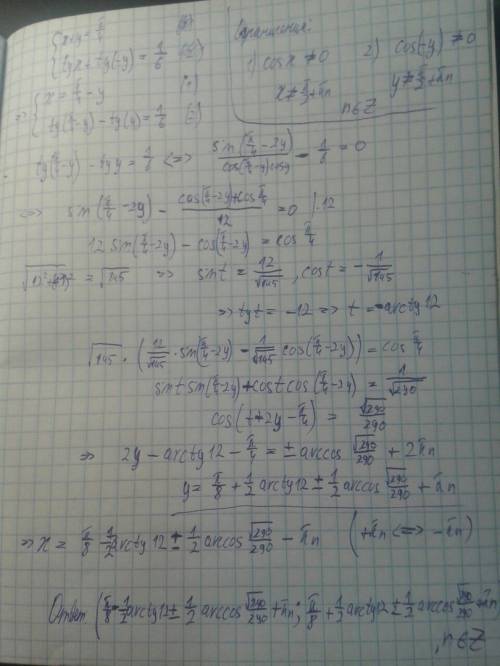 {x+y=π/4
{tgx+tg(-y)=1/6 (2)
Ограничения:
1) cosx≠0 2) cos(-y)≠0
x≠π/2+πn y≠π/2+πn
n∈Z
=> {x=π/4-y (1)
{tg(π/4-y)-tg(y)=1/6 (2)
tg(π/4-y)-tgy=1/6 <=> sin(π/4-2y)/cos(π/4-y)cosy - 1/6=0
<=> sin(π/4-2y)-(cos(π/4-2y)+cosπ/4)/12=0 |·12
12sin(π/4-2y)-cos(π/4-2y)=cosπ/4
=√145 => sint=12/√145, cost=-1/√145
=> tgt=-12 => t=-arctg12
√145·(12/√145·sin(π/4-2y)-1/√145cos(π/4-2y))=cosπ/4
sintsin(π/4-2y)+costcos(π/4-2y)=1/√290
cos(t+2y-π/4)=√290/290
=> 2y-arctg12-π/4=±arccos√290/290+2πn
y=π/8+1/2arctg12±1/2arccos√290/290+πn
=> x=π/8-1/2arctg12±1/2arccos√290/290-πn (+πn<=>-πn)
Ответ (π/8-1/2arctg12±1/2arccos√290/290+πn; π/8+1/2arctg12±1/2arccos√290/290+πn)
,n∈Z